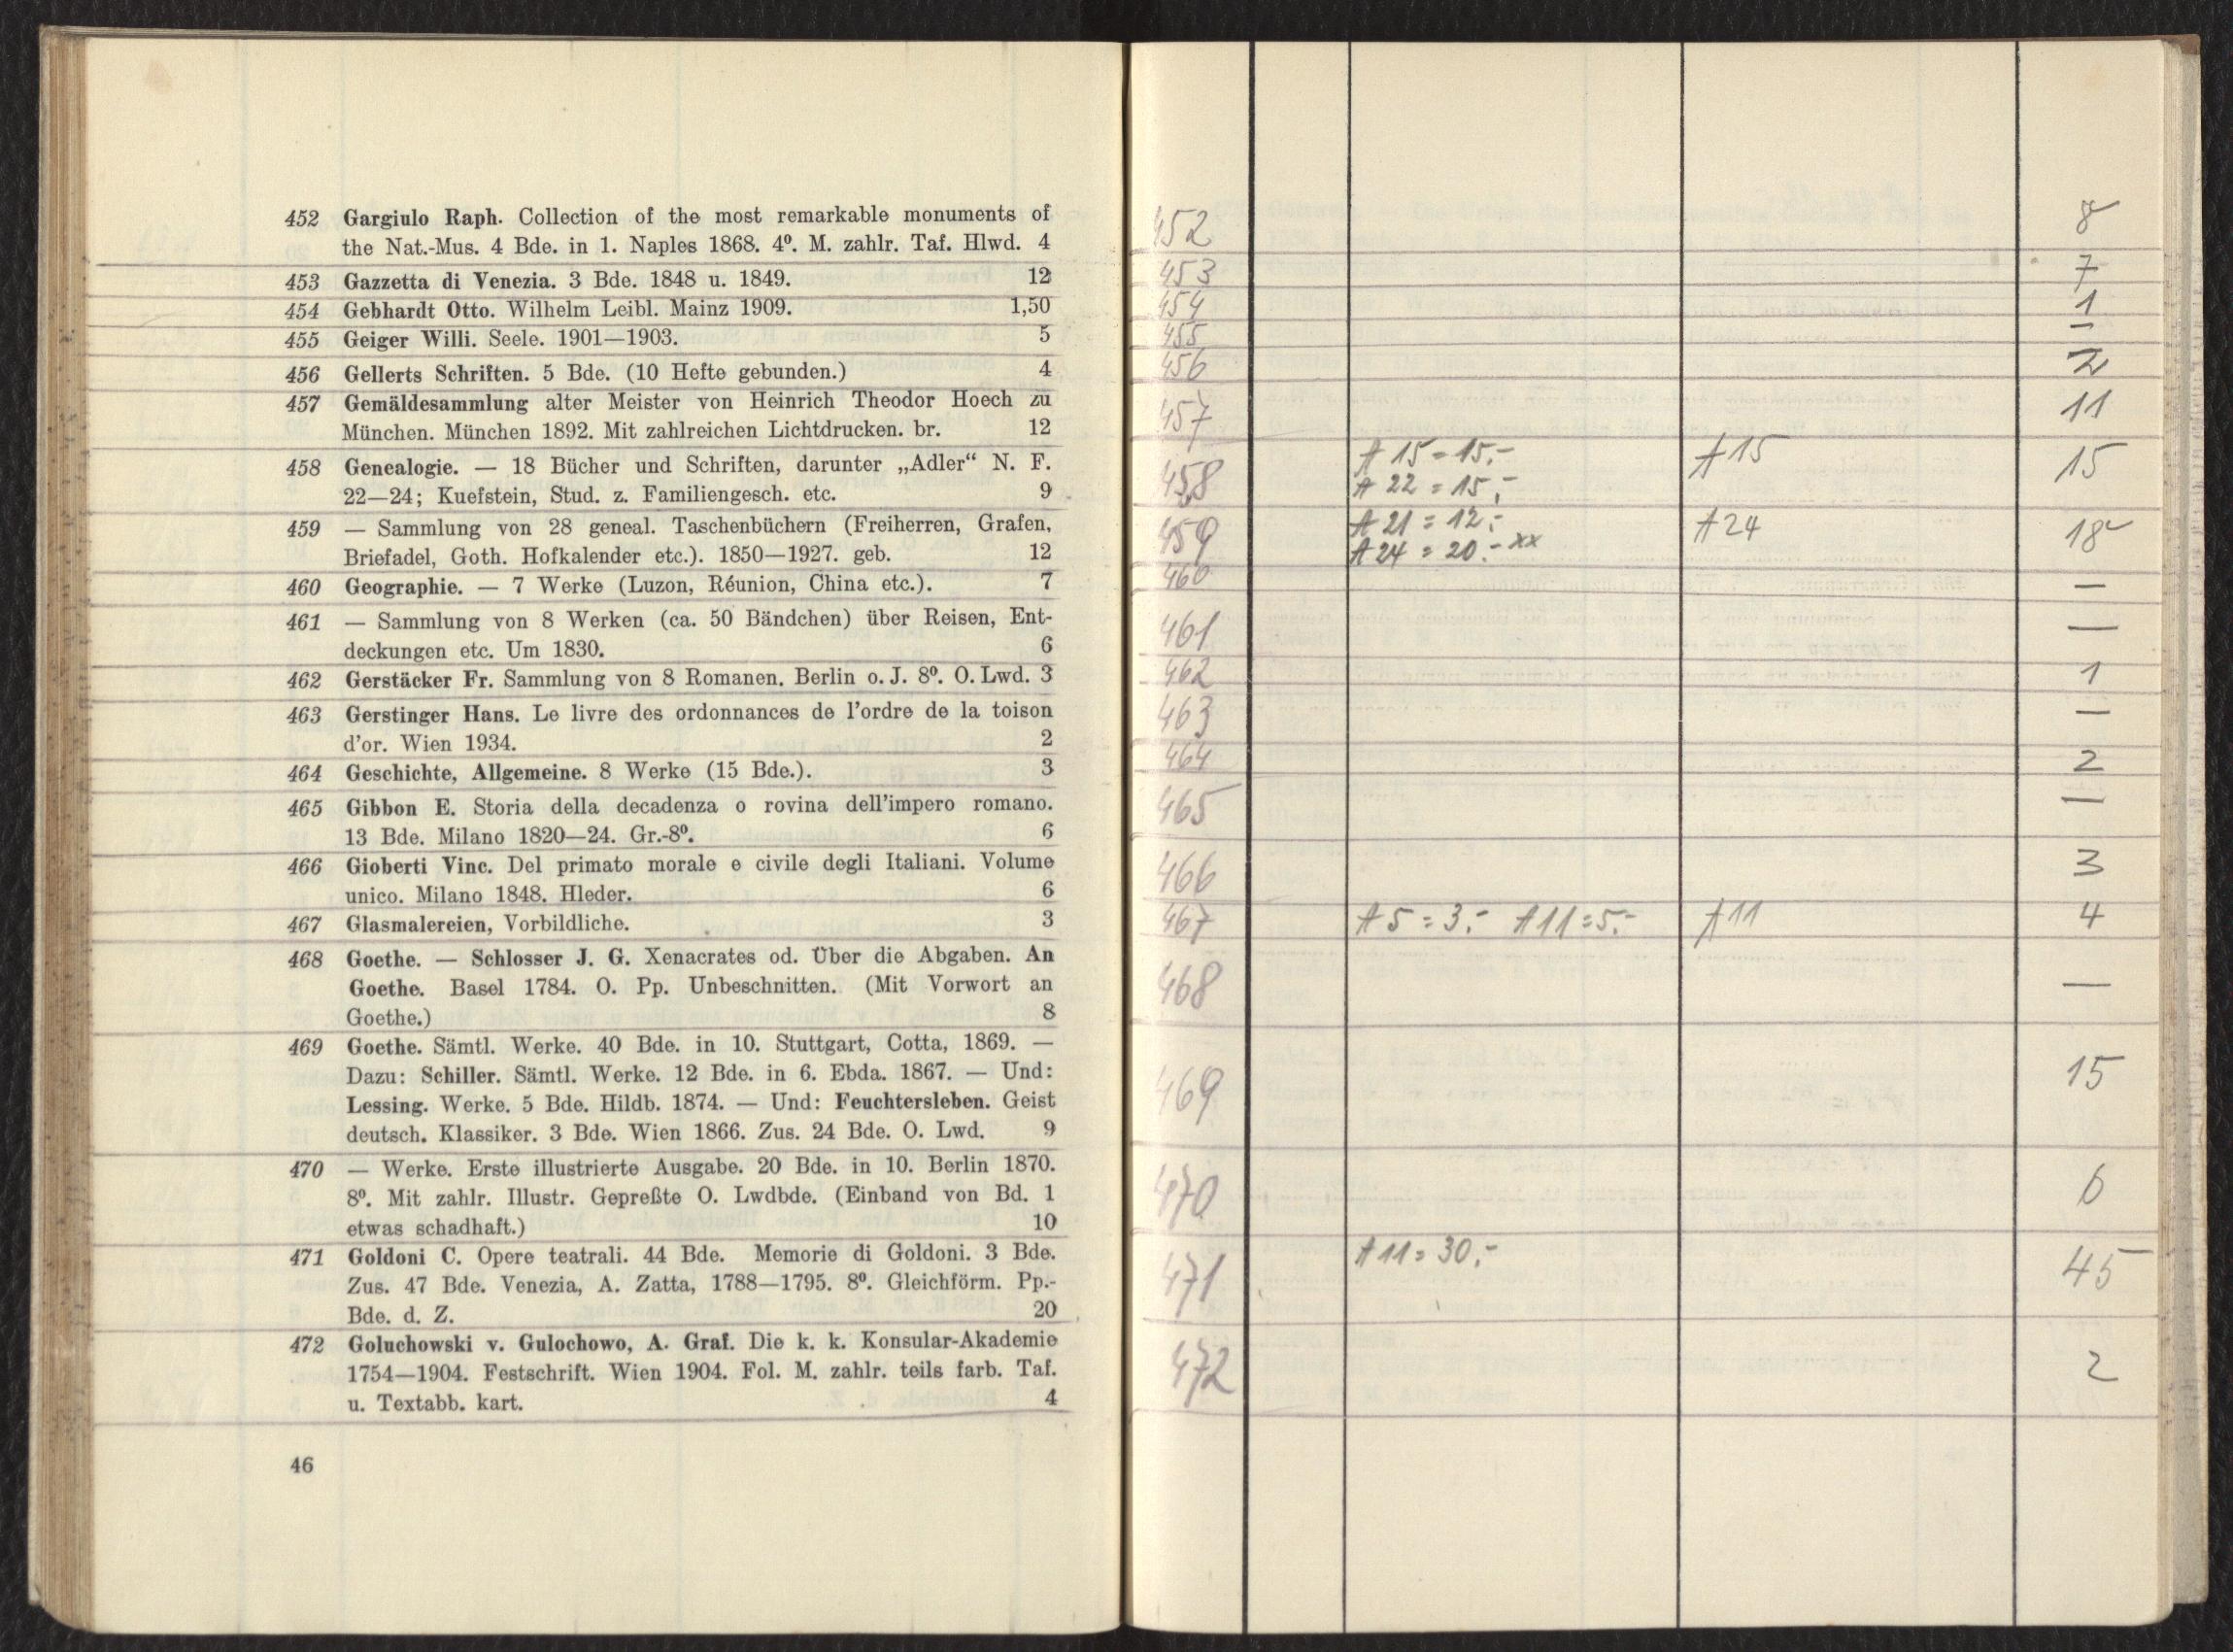 452 Gargiulo Raph. Collection of the most remarkable monuments of
the Nat.-Mus. 4 Bde. in 1. Naples 1868. 4º. M. zahlr. Taf. Hlwd. 4
453 Gazzetta di Venezia. 3 Bde. 1848 u. 1849. 12
454 Gebhardt Otto. Wilhelm Leibl. Mainz 1909. 1,50
455 Geiger Willi. Seele. 1901—1903. 5
456 Gellerts Schriften. 5 Bde. (10 Hefte gebunden.) 4
457 Gemäldesammlung alter Meister von Heinrich Theodor Hoech zu
München. München 1892. Mit zahlreichen Lichtdrucken. br. 12
458 Genealogie. — 18 Bücher und Schriften, darunter „Adler“ N. F.
22—24; Kuefstein, Stud. z. Familiengesch. etc. 9
459 — Sammlung von 28 geneal. Taschenbüchern (Freiherren, Grafen,
Briefadel, Goth. Hofkalender etc.). 1850—1927. geb. 12
460 Geographie. — 7 Werke (Luzon, Réunion, China etc.). 7
461 — Sammlung von 8 Werken (ca. 50 Bändchen) über Reisen, Ent-
deckungen etc. Um 1830. 6
462 Gerstäcker Fr. Sammlung von 8 Romanen. Berlin o. J. 8º. O. Lwd. 3
463 Gerstinger Hans. Le livre des ordonnances de l'ordre de la toison
d'or. Wien 1934. 2
464 Geschichte, Allgemeine. 8 Werke (15 Bde.). 3
465 Gibbon E. Storia della decadenza o rovina dell'impero romano.
13 Bde. Milano 1820—24. Gr.-8º. 6
466 Gioberti Vinc. Del primato morale e civile degli Italiani. Volume
unico. Milano 1848. Hleder. 6
467 Glasmalereien, Vorbildliche. 3
468 Goethe. — Schlosser J. G. Xenacrates od. Über die Abgaben. An
Goethe. Basel 1784. O. Pp. Unbeschnitten. (Mit Vorwort an
Goethe.) 8
469 Goethe. Sämtl. Werke. 40 Bde. in 10. Stuttgart, Cotta, 1869. —
Dazu: Schiller. Sämtl. Werke. 12 Bde. in 6. Ebda. 1867. — Und:
Lessing. Werke. 5 Bde. Hildb. 1874. — Und: Feuchtersleben. Geist
deutsch. Klassiker. 3 Bde. Wien 1866. Zus. 24 Bde. O. Lwd. 9
470 — Werke. Erste illustrierte Ausgabe. 20 Bde. in 10. Berlin 1870.
8º. Mit zahlr. Illustr. Gepreßte O. Lwdbde. (Einband von Bd. 1
etwas schadhaft.) 10
471 Goldoni C. Opere teatrali. 44 Bde. Memorie di Goldoni. 3 Bde.
Zus. 47 Bde. Venezia, A. Zatta, 1788—1795. 8º. Gleichförm. Pp.-
Bde. d. Z. 20
472 Goluchowski v. Gulochowo, A. Graf. Die k. k. Konsular-Akademie
1754—1904. Festschrift. Wien 1904. Fol. M. zahlr. teils farb. Taf.
u. Textabb. kart. 4
46
452 8
453 7
454 1
455 —
456 2
457 11
458 A 15 = 15.- A 15 15
A 22 = 15.-
459 A 21 = 12.- A 24 18
A 24 = 20.- xx
460 —
461 —
462 1
463 —
464 2
465 —
466 3
467 A 5 = 3.- A 11 = 5.- A 11 4
468 —
469 15
470 6
471 A 11 = 30.- 45
472 2